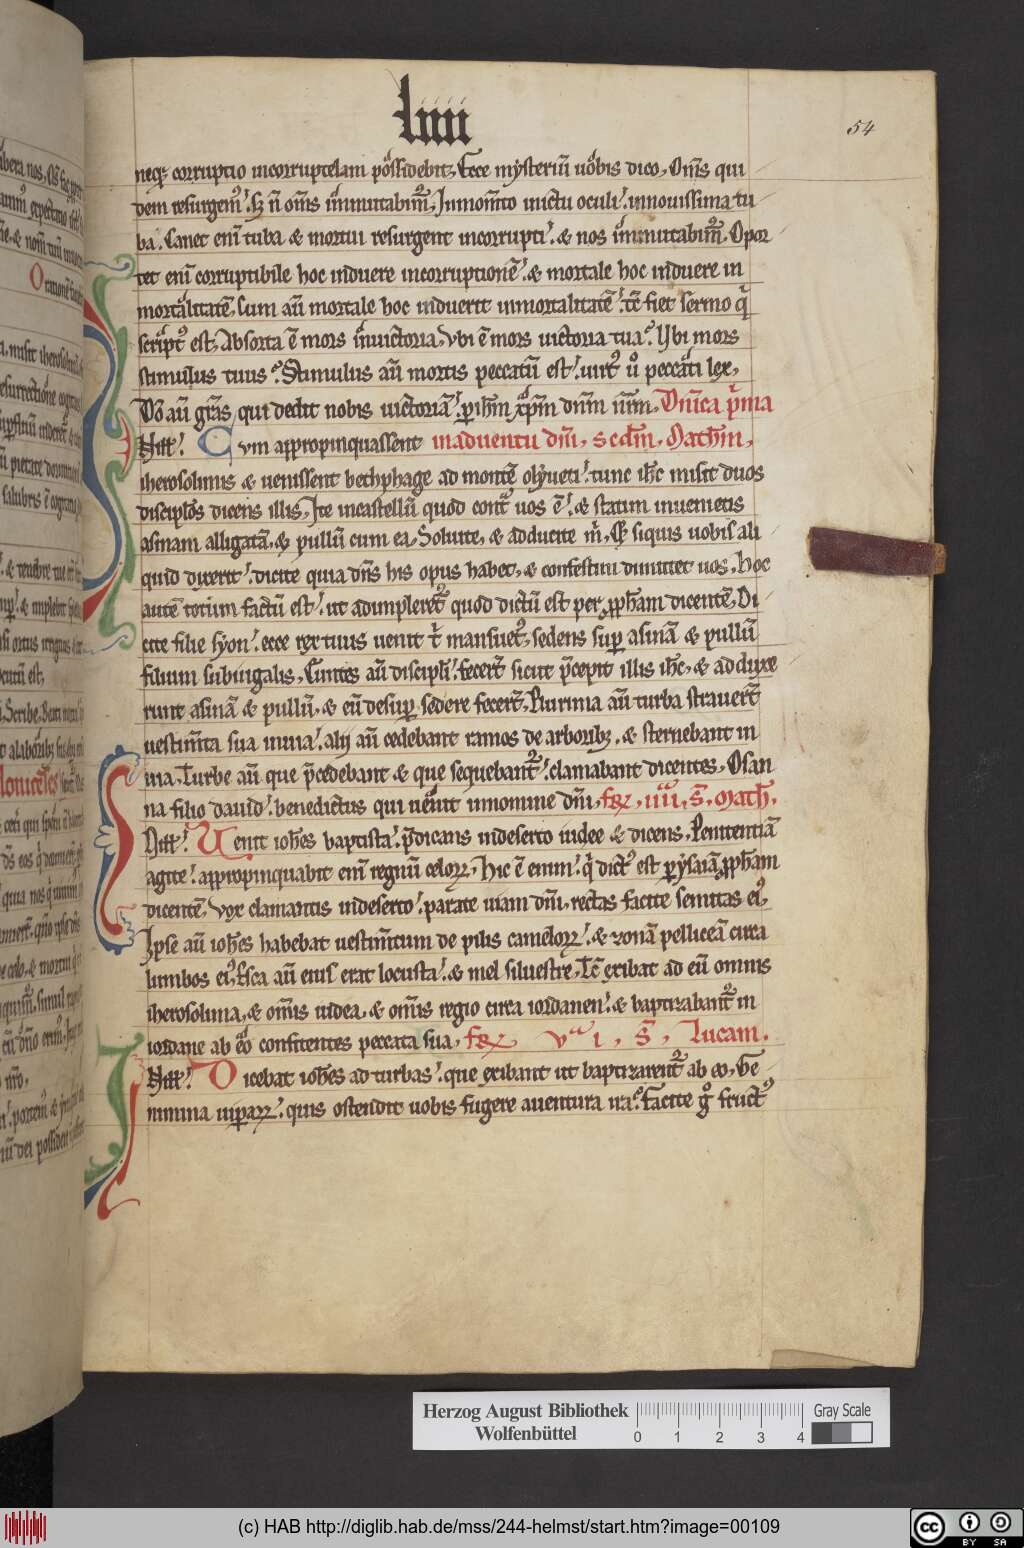 liiii
54
neq; corruptio incorruptelam possidebit, Ecce mysteriū uobis dico, Om̄s qui
dem resurgem᷒ ! sꝫ n̄ om̄s immutabim᷒, Inmom̄to inictu oculi ! innouissima tu
ba. Canet enī tuba & mortui resurgent incorrupti ! & nos immutabim᷒, Opor
tet enī corruptibile hoc induere incorruptionē ! & mortale hoc induere in
mortalitatē, Cum aū mortale hoc induerit inmortalitatē ! tc̄ fiet sermo q̄
script᷒ est, Absorta ē mors inuictoria, Vbi ē mors uictoria tua? Vbi mors
stimulus tuus? Stimulus aū mortis peccatū est ! uirt᷒ ů peccati lex,
Dō aū grās qui dedit nobis uictoriā ! p ihm̄ xp̄m dnm̄ nr̄m, Dn̄ica p̄ma
N ill̄ ! Cum appropinquassent inaduentu dn̄i, s ecdm̄, Mathm̄,
iherosolimis & uenissent bethphage ad montē olyueti ! tunc ih̄c misit duos
discipl̄os dicens illis, Ite incastellū quod cont̄ uos ē ! & statim inuenietis
asinam alligatā, & pullū cum ea, Soluite, & adducite m̄, Et siquis uobis ali
quid dixerit ! dicite quia dn̄s his opus habet, & confestim dimittet uos, Hoc
autē totum factū est ! ut adimpleret᷒ quod dictū est per pph̄am dicentē, Di
cite filie syon ! ecce rex tuus uenit t̄ mansuet᷒, sedens sup asinā & pullū
filium subiugalis, Euntes aū discipl̄i ! fecert̄ sicut p̄cepit illis ih̄c, & adduxe
runt asinā & pullū, & eū desup sedere fecert̄, Plurima aū turba strauert̄
uestim̄ta sua inuia ! alij aū cedebant ramos de arborib;, & sternebant in
uia, Turbe aū que p̄cedebant & que sequebant᷒ ! clamabant dicentes, Osan
na filio dauid ! benedictus qui uenit innomine dn̄i, feꝝ, iiii, s̄, Math̄,
N ill̄ ! Uenit ioh̄es baptista ! p̄dicans indeserto iudee & dicens, Penitentiā
agite ! appropinquabit enī regnū celoꝝ, Hic ē enim ! q̄ dict᷒ est p ysaiā pph̄am
dicentē, Vox clamantis indeserto ! parate uiam dn̄i, rectas facite semitas ei᷒,
Ipse aū ioh̄es habebat uestim̄tum de pilis cameloꝝ ! & zonā pelliceā circa
lumbos ei᷒, Esca aū eius erat locusta ! & mel siluestre, Tc̄ exibat ad eū omnis
iherosolima, & om̄is iudea, & om̄is regio circa iordanen ! & baptizabant᷒ in
iordane ab eo confitentes peccata sua, feꝝ, vi, s̄, Lucam.
N ill̄ ! Dicebat ioh̄es ad turbas ! que exibant ut baptizarent᷒ ab eo, Ge
nimina uipaꝝ ! quis ostendit uobis fugere auentura ira? Facite g̊ fruct᷒
Herzog August Bibliothek
Wolfenbüttel
0 1 2 3 4
Gray Scale
(c) HAB http://diglib.hab.de/mss/244-helmst/start.htm?image=00109
cc BY SA